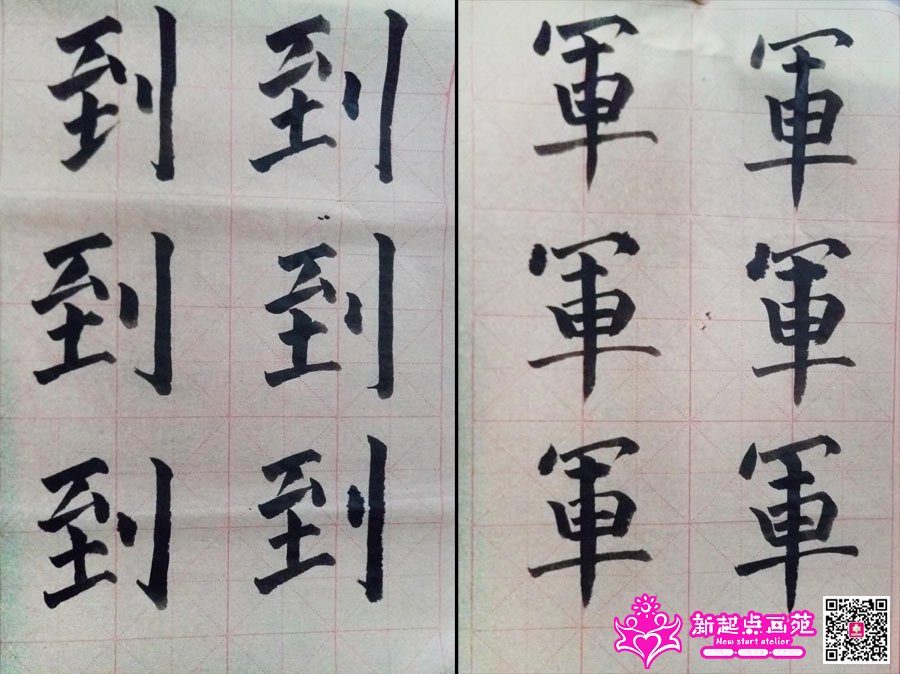 到 到
到 到
到 到
軍 軍
軍 軍
軍 軍
新起点画苑
New start atelier